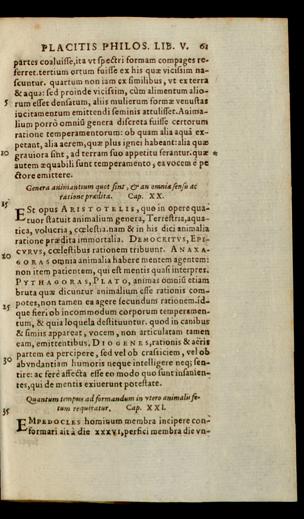 PLACITIS PHILOS. LIB. V. 61
partes coaluisse, ita vt spectri formam compages re-
ferret. tertium ortum fuisse ex his quæ vicissim na-
scuntur. quartum non iam ex similibus, vt ex terra
& aqua: sed proinde vicissim, cùm alimentum alio-
5 rum esset densatum, aliis mulierum formæ venustas
incitamentum emittendi seminis attulisset. Anima-
lium porrò omniũ genera discreta fuisse certorum
ratione temperamentorum: ob quam alia aquã ex-
petant, alia aerem, quæ plus ignei habeant: alia quæ
10 grauiora sint, ad terram suo appetitu ferantur. quæ *
autem æquabili sunt temperamento, ea vocem è pe
ctore emittere.
Genera animantium quot sint, & an omnia sensu ac
ratione prædita. Cap. XX.
15
EST opus ARISTOTELIS, quo in opere qua-
tuor statuit animalium genera, Terrestria, aqua-
tica, volucria, cœlestia. nam & in his dici animalia
ratione prædita immortalia. DEMOCRITVS, EPI-
CVRVS, cœlestibus rationem tribuunt. ANAXA-
20 GORAS omnia animalia habere mentem agentem:
non item patientem, qui est mentis quasi interpres.
PYTHAGORAS, PLATO, animas omniũ etiam
bruta quæ dicuntur animalium esse rationis com-
potes, non tamen ea agere secundum rationem. id-
25 que fieri ob incommodum corporum temperamen-
tum, & quia loquela destituuntur. quod in canibus
& simiis appareat, vocem, non articulatam tamen
eam, emittentibus, DIOGENES, rationis & aëris
partem ea percipere, sed vel ob crassiciem, vel ob
30 abvndantiam humoris neque intelligere neq; sen-
tire: ac ferè affecta esse eo modo quo sunt insanien-
tes, qui de mentis exiuerunt potestate.
Quantum tempus ad formandum in vtero animali fe-
tum requiratur. Cap. XXI.
35
EMPEDOCLES hominum membra incipere con-
formari ait à die XXXVI, perfici membra die vn-